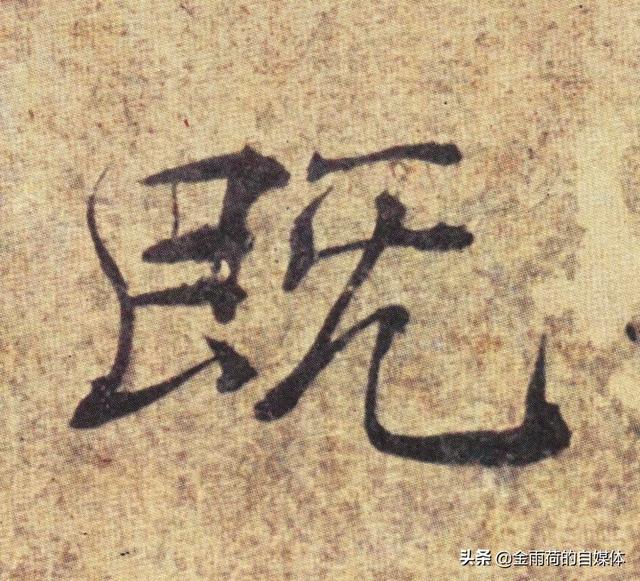 既
头条 @金雨荷的自媒体